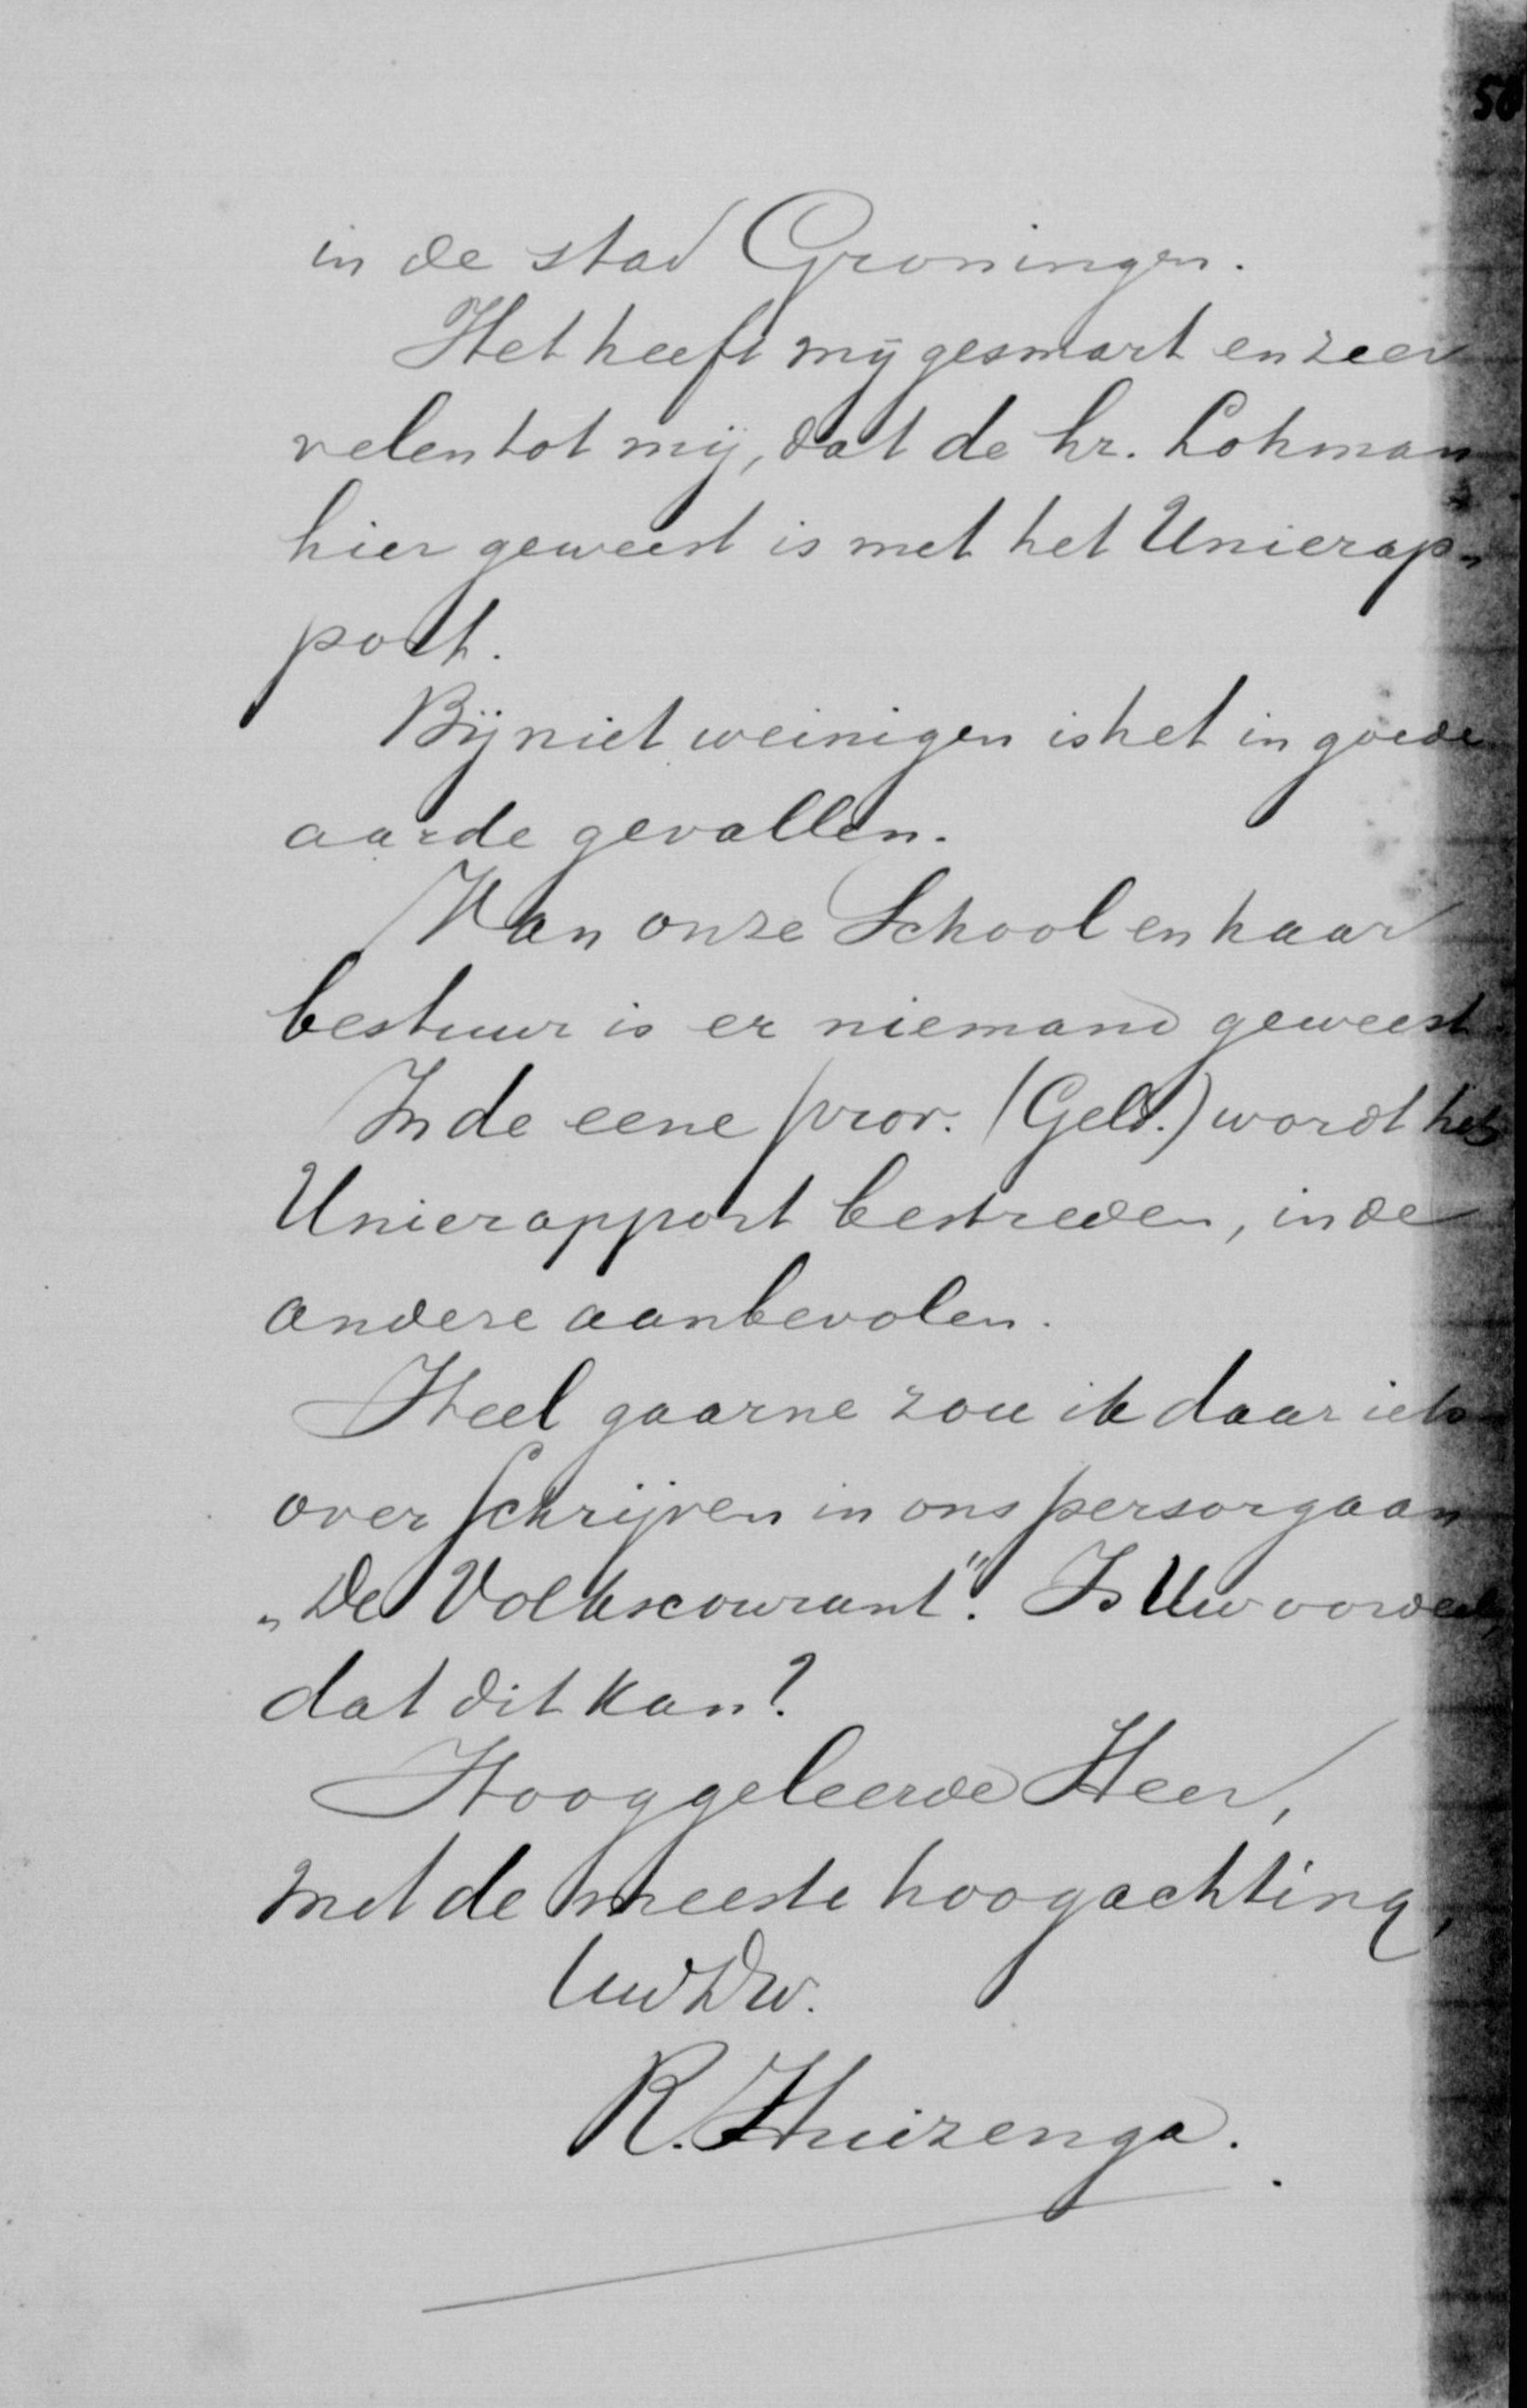 in de stad Groningen.
Het heeft mij gesmart en zeer
velen tot mij, dat de hr. Lohman
hier geweest is met het Unierap-
port.
Bij niet weinigen is het in goede
aarde gevallen.
Van onze School en haar
bestuur is er niemand geweest.
In de eene prov. (Geld.) wordt het
Unierapport bestreden, in de
andere aanbevolen.
Heel gaarne zou ik daar iets
over schrijven in ons persorgaan
„De Volkscourant". Is Uw oordeel,
dat dit kan?
Hooggeleerde Heer,
met de meeste hoogachting,
Uw Dw.
R. Huizenga.